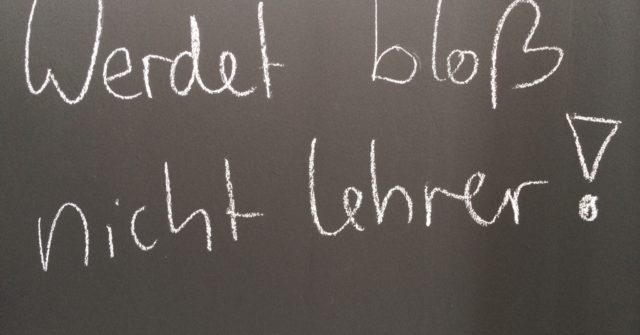 Werdet bloß
nicht Lehrer!